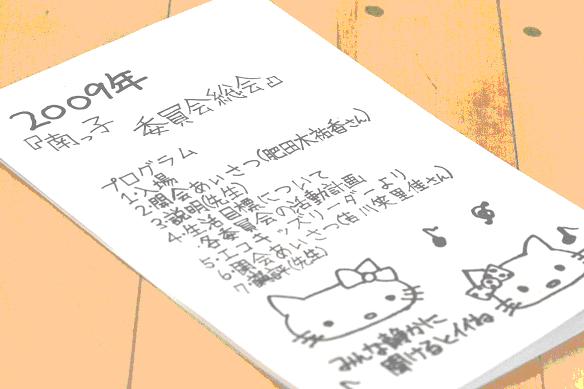 2009年
『南っ子 委員会総会』
プログラム
1.入場
2.開会あいさつ(肥田木祐香さん)
3.説明(先生)
4.生活目標について
・各委員会の活動計画」
5.エコキッズリーダーより
6.閉会あいさつ(吉川笑里佳さん)
7.講評(先生)
みんな静かに
聞けるとイイね